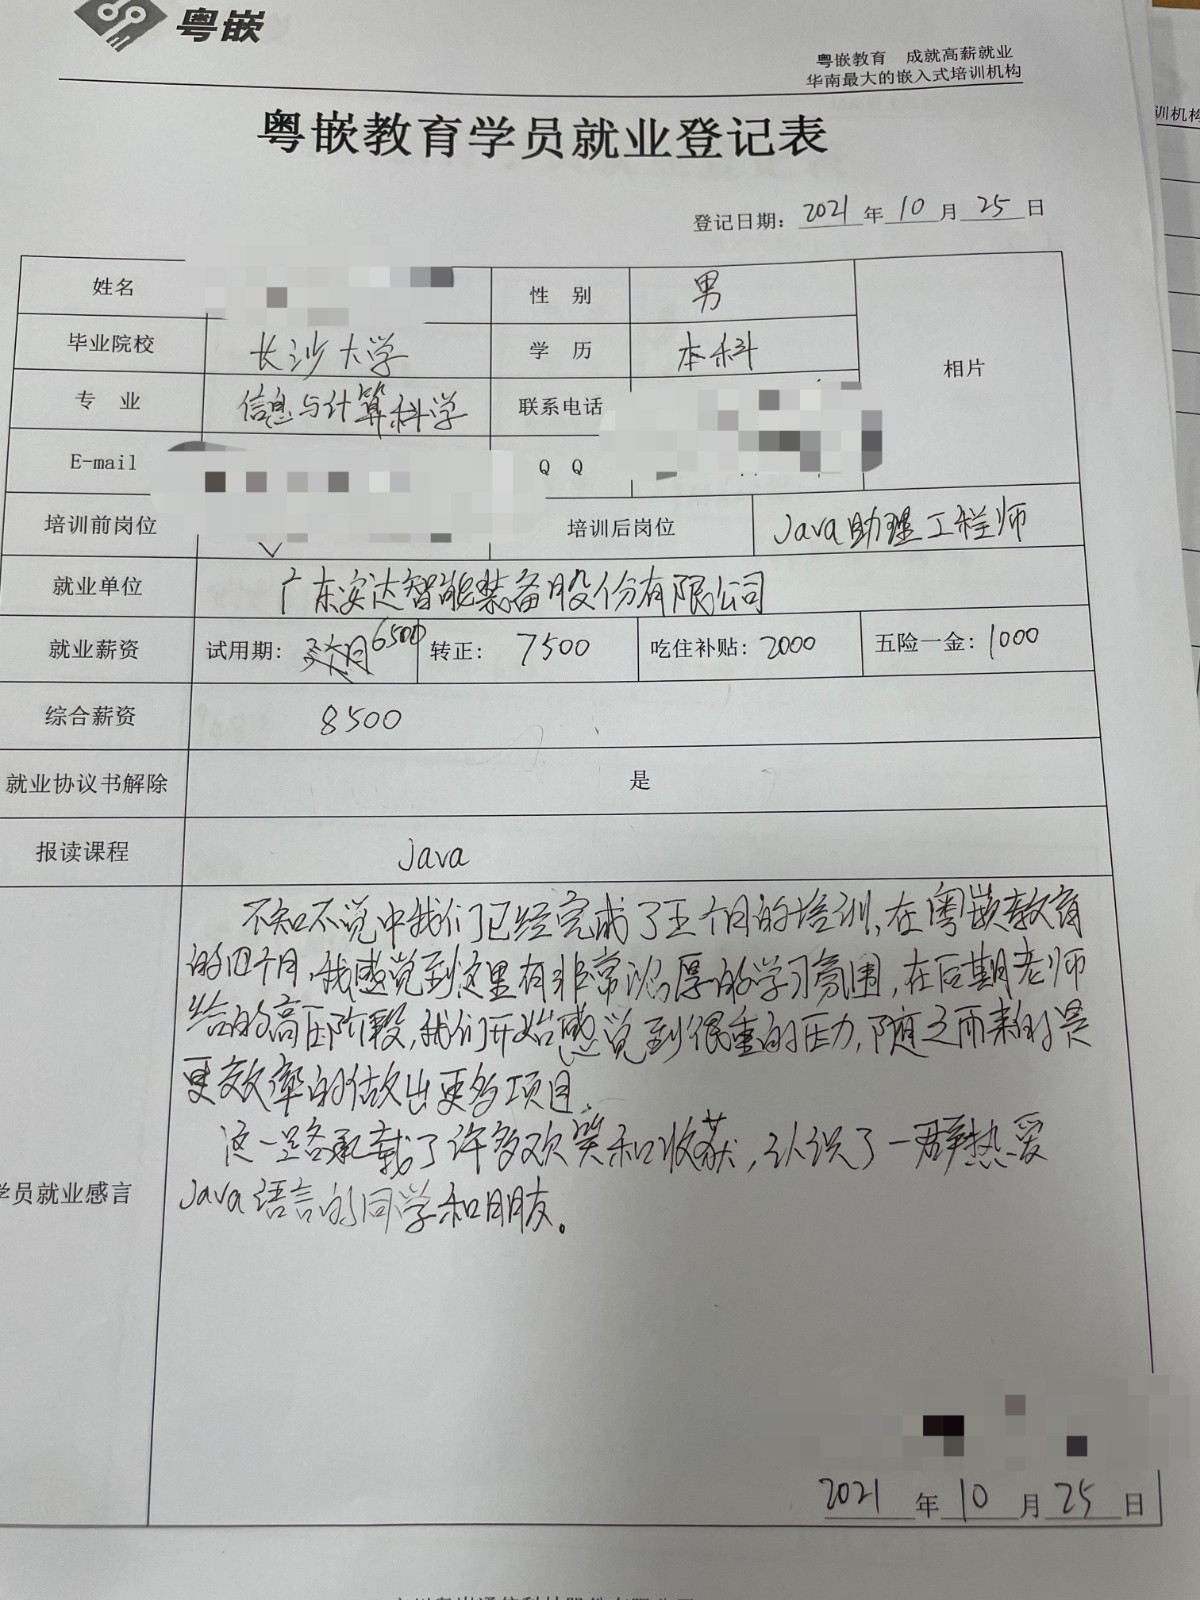 粤嵌
粤嵌教育 成就高薪就业
华南最大的嵌入式培训机构
训机构
粤嵌教育学员就业登记表
登记日期: 2021 年 10 月 25 日
姓名 性 别 男
毕业院校 长沙大学 学 历 本科 相片
专 业 信息与计算科学 联系电话
E-mail Q Q
培训前岗位 培训后岗位 Java助理工程师
就业单位 广东安达智能装备股份有限公司
就业薪资 试用期: 6500 转正: 7500 吃住补贴: 2000 五险一金: 1000
综合薪资 8500
就业协议书解除 是
报读课程 Java
不知不觉中我们已经完成了五个月的培训,在粤嵌教育
的四个月,我感觉到这里有非常浓厚的学习氛围,在后期老师
给的高压阶段,我们开始感觉到很重的压力,随之而来的是
更效率的做出更多项目
这一路承载了许多欢笑和收获,认识了一群热爱
学员就业感言
Java语言的同学和朋友。
2021 年 10 月 25 日